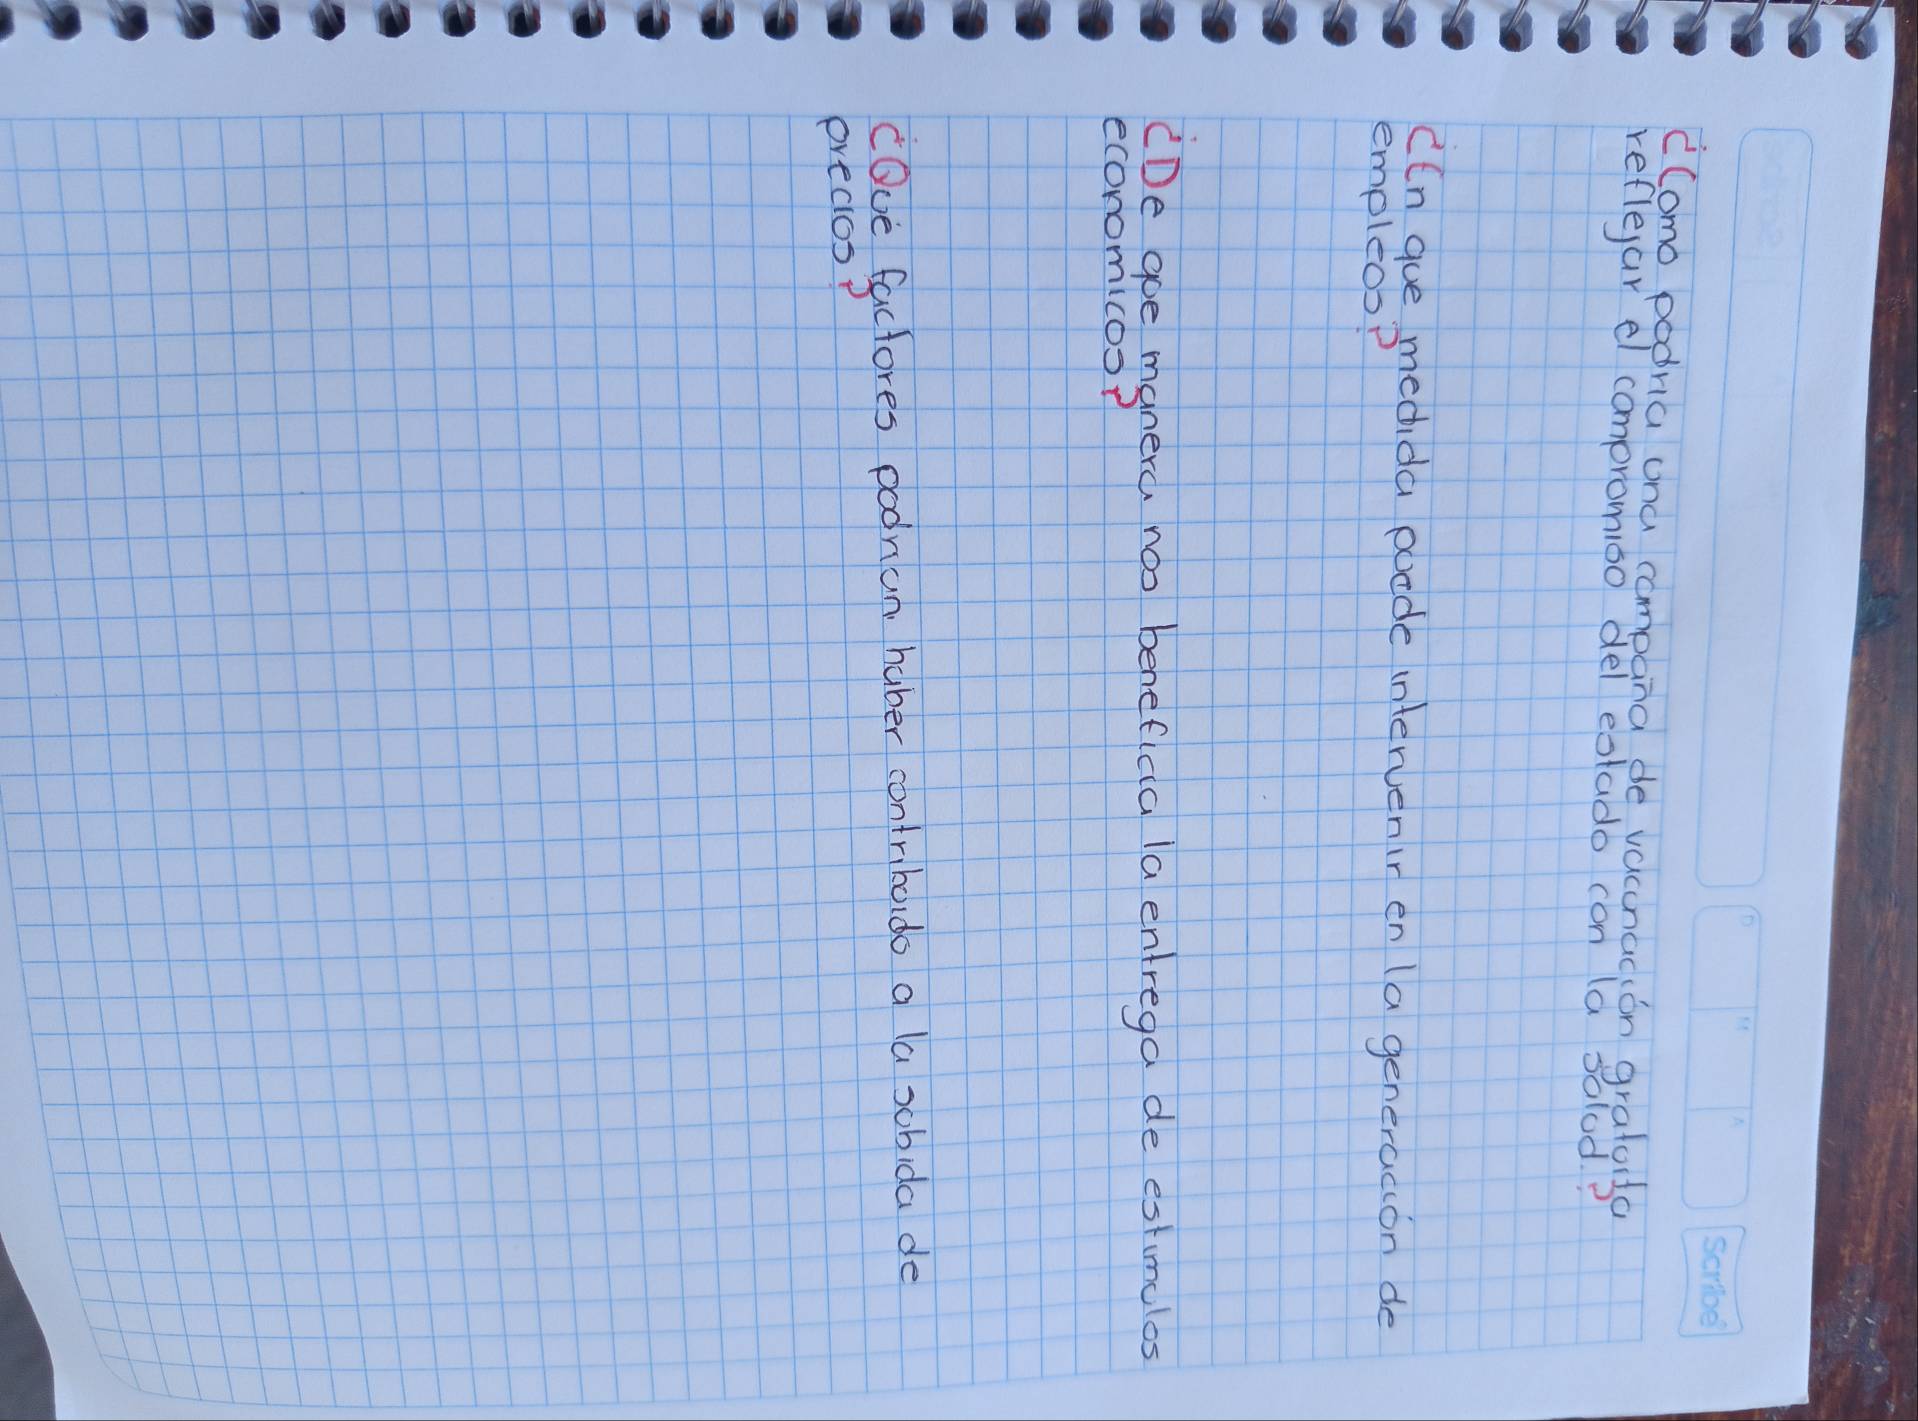 D M A
Scribe
¿Como podria una campaña de vacunación gratuita
reflejar el compromiso del estado con la salud?
¿En que medida puede intervenir en la generación de
empleos?
¿De que manera nos beneficia la entrega de estimulos
economicos?
¿Qué factores podrian haber contribuido a la subida de
precios?